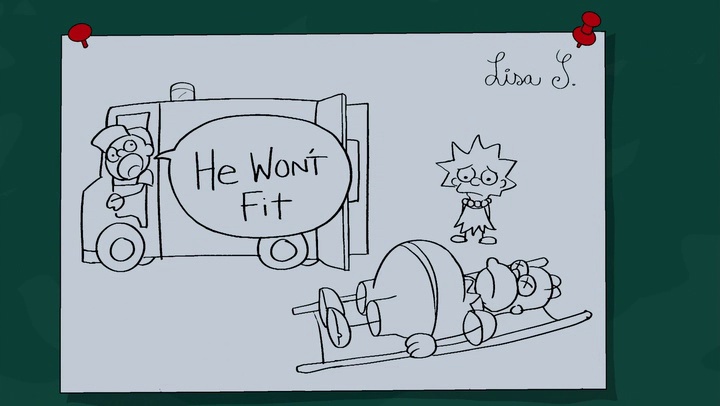 Lisa S.
He Won't
Fit